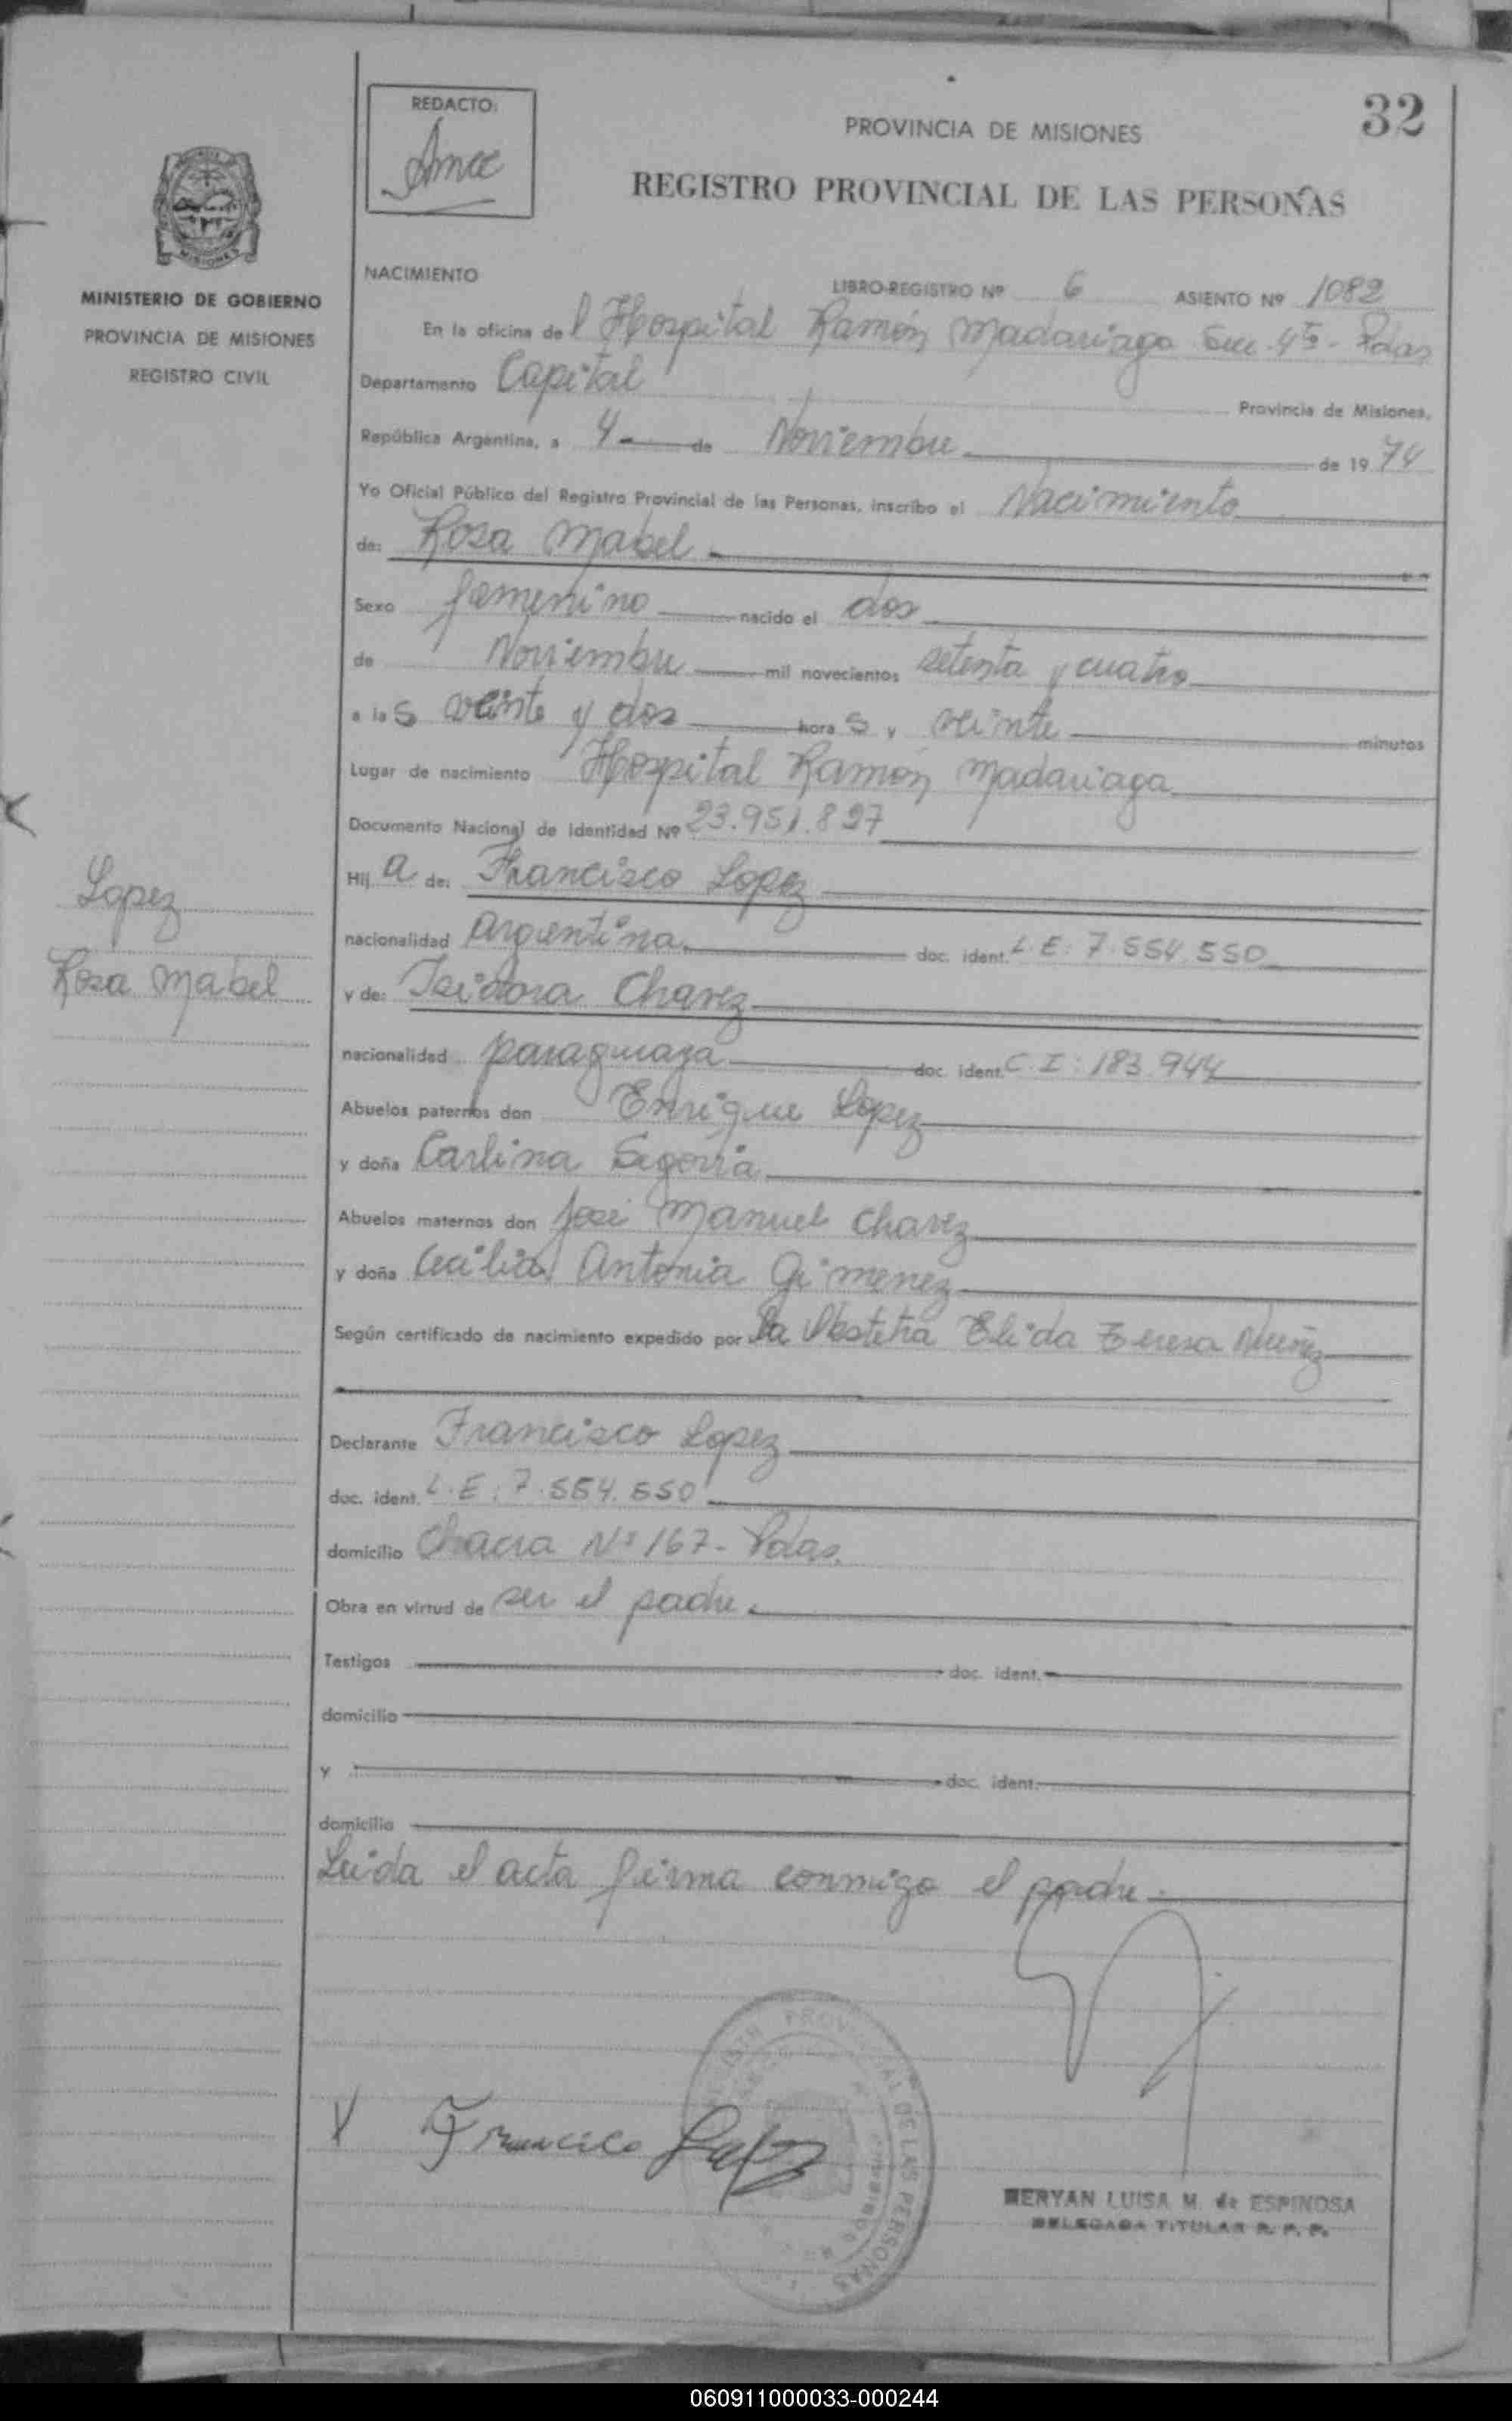 32
REDACTO:
PROVINCIA DE MISIONES
REGISTRO PROVINCIAL DE LAS PERSONAS
MISIONES
MINISTERIO DE GOBIERNO
PROVINCIA DE MISIONES
REGISTRO CIVIL
NACIMIENTO
LIBRO-REGISTRO Nº 6 ASIENTO Nº 1082
En la oficina del Hospital Ramón Madariaga Suc. 4ta - Pdas
Departamento Capital Provincia de Misiones,
República Argentina, a 4 de Noviembre de 1974
Yo Oficial Público del Registro Provincial de las Personas, inscribo el Nacimiento
de: Rosa Mabel
Sexo femenino nacido el dos
de Noviembre mil novecientos setenta y cuatro
a las veinte y dos horas y veinte minutos
Lugar de nacimiento Hospital Ramón Madariaga
Documento Nacional de Identidad Nº 23.951.897
Hija de: Francisco Lopez
nacionalidad argentina doc. ident. L.E: 7.554.550
y de: Isidora Chavez
nacionalidad paraguaya doc. ident. C.I: 183.944
Abuelos paternos don Enrique Lopez
y doña Carlina Segovia
Abuelos maternos don José Manuel Chavez
y doña Cecilia Antonia Gimenez
Según certificado de nacimiento expedido por la Obstetra Elida Teresa Nuñez
Declarante Francisco Lopez
doc. ident. L.E: 7.554.550
domicilio Chacra Nº 167 - Pdas.
Obra en virtud de ser el padre
Testigos doc. ident.
domicilio
y doc. ident.
domicilio
Leida el acta firma conmigo el padre
Lopez
Rosa Mabel
X Francico Lopez
PROVINCIAL DE LAS PERSONAS
MERYAN LUISA M. de ESPINOSA
DELEGADA TITULAR R. P. P.
060911000033-000244